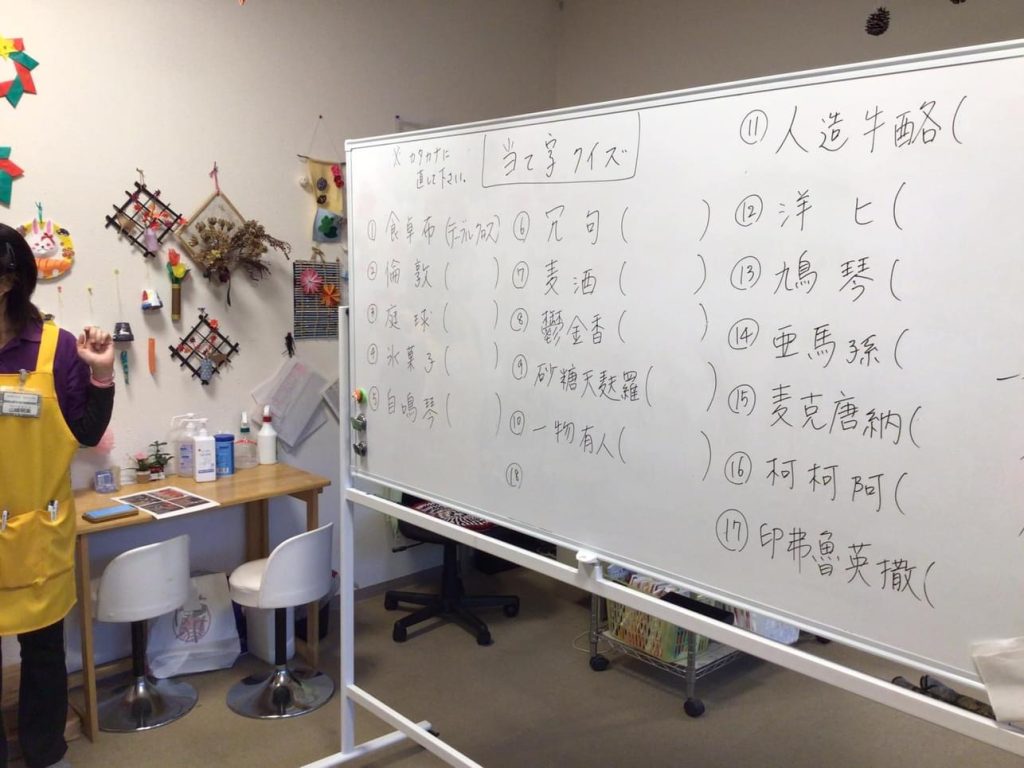 ※ カタカナに
直して下さい。
当て字クイズ
① 食卓布(テーブルクロス)
② 倫敦(　)
③ 庭球(　)
④ 氷菓子(　)
⑤ 自鳴琴(　)
⑥ 冗句(　)
⑦ 麦酒(　)
⑧ 鬱金香(　)
⑨ 砂糖天麩羅(　)
⑩ 一物有人(　)
⑱
⑪ 人造牛酪(
⑫ 洋ヒ(
⑬ 鳩琴(
⑭ 亜馬孫(
⑮ 麦克唐納(
⑯ 柯柯阿(
⑰ 印弗魯英撒(